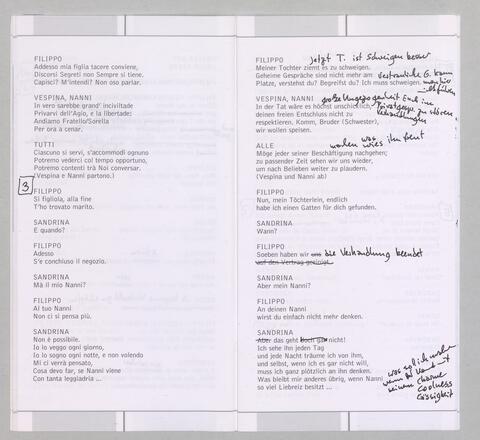 FILIPPO
Adesso mia figlia tacere conviene,
Discorsi Segreti non Sempre si tiene.
Capisci? M'intendi? Non oso parlar.
VESPINA, NANNI
In vero sarebbe grand' incivilitade
Privarvi dell'Agio, e la libertade:
Andiamo Fratello/Sorella
Per ora a cenar.
TUTTI
Ciascuno si servi, s'accommodi ognuno
Potremo vederci col tempo opportuno,
Potremo contenti trà Noi conversar.
(Vespina e Nanni partono.)
3
FILIPPO
Si figliola, alla fine
T'ho trovato marito.
SANDRINA
E quando?
FILIPPO
Adesso
S'è conchiuso il negozio.
SANDRINA
Mà il mio Nanni?
FILIPPO
Al tuo Nanni
Non ci si pensa più.
SANDRINA
Non è possibile.
Io lo veggo ogni giorno,
Io lo sogno ogni notte, e non volendo
Mi ci verrà pensato,
Cosa devo far, se Nanni viene
Con tanta leggiadria ...
FILIPPO jetzt T. ist Schweigen besser
Meiner Tochter ziemt es zu schweigen.
Geheime Gespräche sind nicht mehr am vertrauliche G. kann
Platze, verstehst du? Begreifst du? Ich muss schweigen. man hier
nicht führen
VESPINA, NANNI große Ungezogenheit
In der Tat wäre es höchst unschicklich, Privatgespr. zu stören
deinen freien Entschluss nicht zu
respektieren. Komm, Bruder (Schwester),
wir wollen speisen.
ALLE was
Möge jeder seiner Beschäftigung nachgehen;
zu passender Zeit sehen wir uns wieder,
um nach Belieben weiter zu plaudern.
(Vespina und Nanni ab)
FILIPPO
Nun, mein Töchterlein, endlich
habe ich einen Gatten für dich gefunden.
SANDRINA
Wann?
FILIPPO
Soeben haben wir uns die Verhandlung beendet
auf den Vertrag geeinigt.
SANDRINA
Aber mein Nanni?
FILIPPO
An deinen Nanni
wirst du einfach nicht mehr denken.
SANDRINA
Aber das geht doch gar nicht!
Ich sehe ihn jeden Tag
und jede Nacht träume ich von ihm,
und selbst, wenn ich es gar nicht will,
muss ich ganz plötzlich an ihn denken.
Was bleibt mir anderes übrig, wenn Nanni
so viel Liebreiz besitzt ...
was soll ich machen
wenn der Nanni mit
seinem Charme
Coolness
Lässigkeit